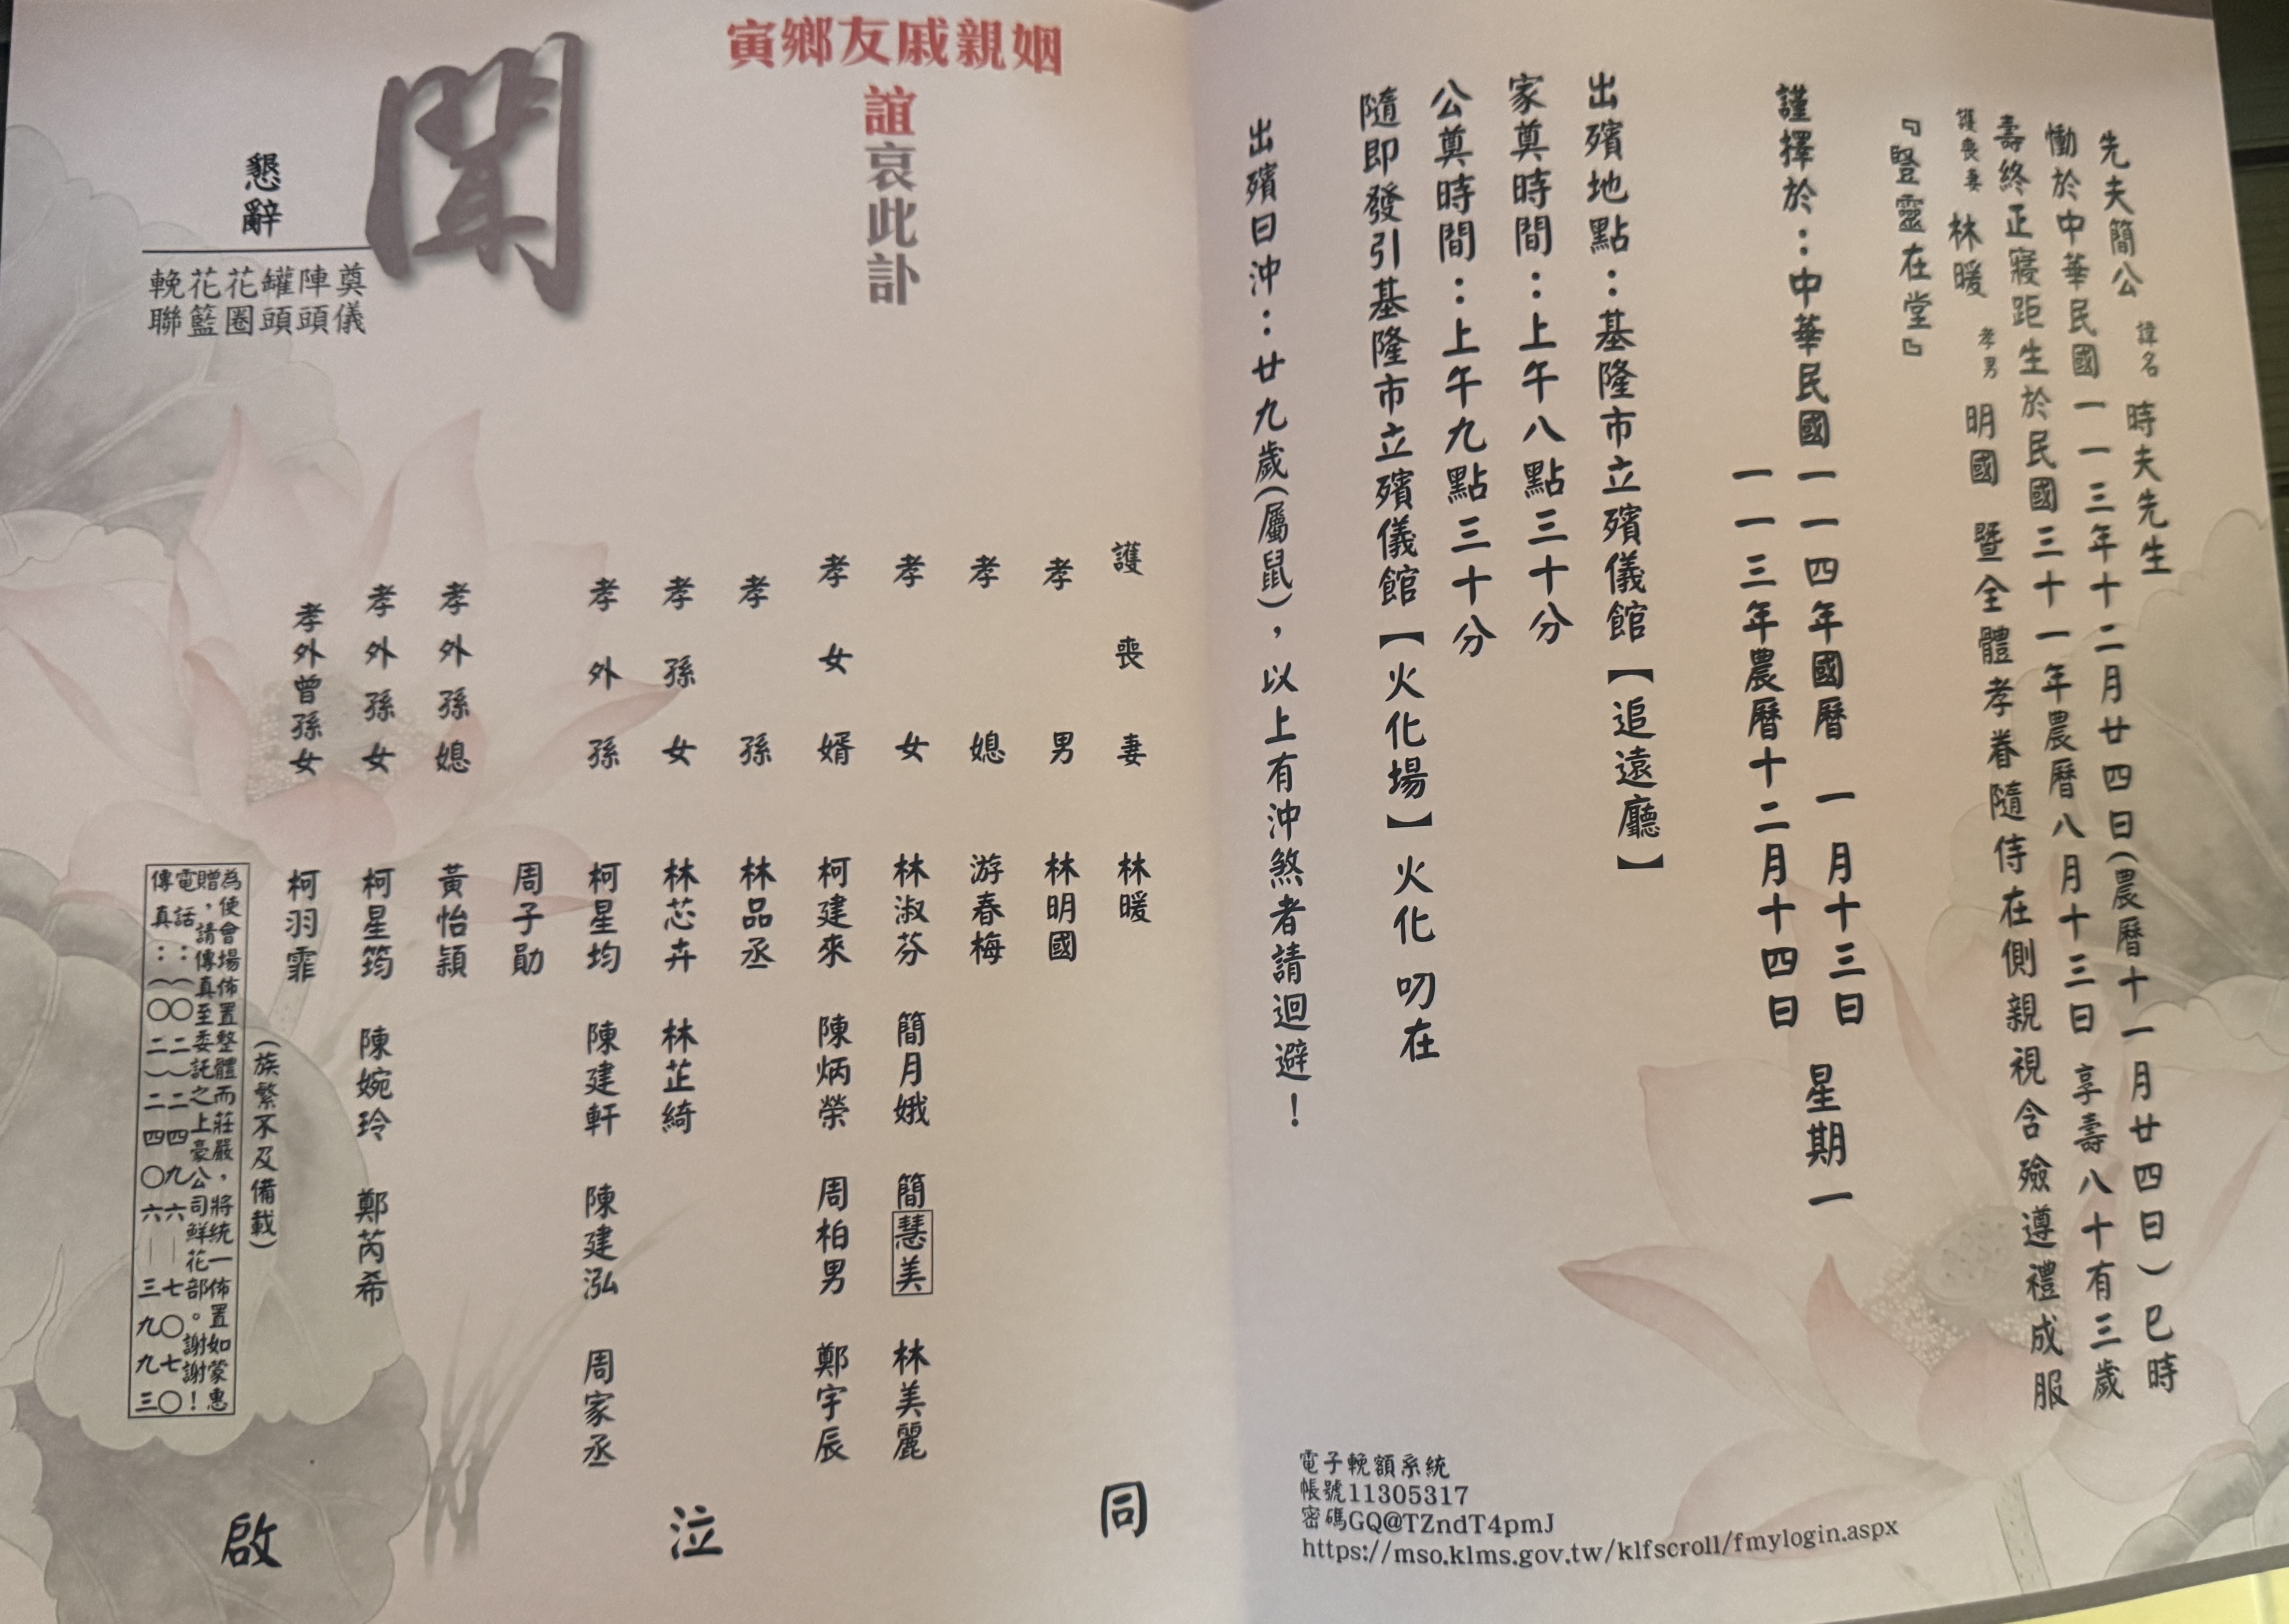 先夫簡公 諱名 時夫先生
慟於中華民國一一三年十二月廿四日(農曆十一月廿四日)巳時
壽終正寢距生於民國三十一年農曆八月十三日 享壽八十有三歲
護喪妻 林暖 孝男 明國 暨全體孝眷隨侍在側親視含殮遵禮成服
『豎靈在堂』
謹擇於：中華民國一一四年國曆 一月十三日 星期一
一一三年農曆十二月十四日
出殯地點：基隆市立殯儀館【追遠廳】
家奠時間：上午八點三十分
公奠時間：上午九點三十分
隨即發引基隆市立殯儀館【火化場】火化 叨在
出殯日沖：廿九歲(屬鼠)，以上有沖煞者請迴避！
電子輓額系統
帳號11305317
密碼GQ@TZndT4pmJ
https://mso.klms.gov.tw/klfscroll/fmylogin.aspx
寅鄉友戚親姻
誼哀此訃
聞
懇辭
奠儀
陣頭
罐頭
花圈
花籃
輓聯
護喪妻 林暖
孝男 林明國
孝媳 游春梅
孝女 林淑芬 簡月娥 簡慧美 林美麗
孝女婿 柯建來 陳炳榮 周柏男 鄭宇辰
孝孫 林品丞
孝孫女 林芯卉 林芷綺
孝外孫 柯星均 陳建軒 陳建泓 周家丞
周子勛
孝外孫媳 黃怡穎
孝外孫女 柯星筠 陳婉玲 鄭芮希
孝外曾孫女 柯羽霏
(族繁不及備載)
同 泣 啟
為使會場佈置整體而莊嚴，將統一佈置如蒙惠
贈，請傳真至委託之上豪公司鮮花部。謝謝！
電話：(〇二)二四九六—七〇七〇
傳真：(〇二)二四〇六—三九九三